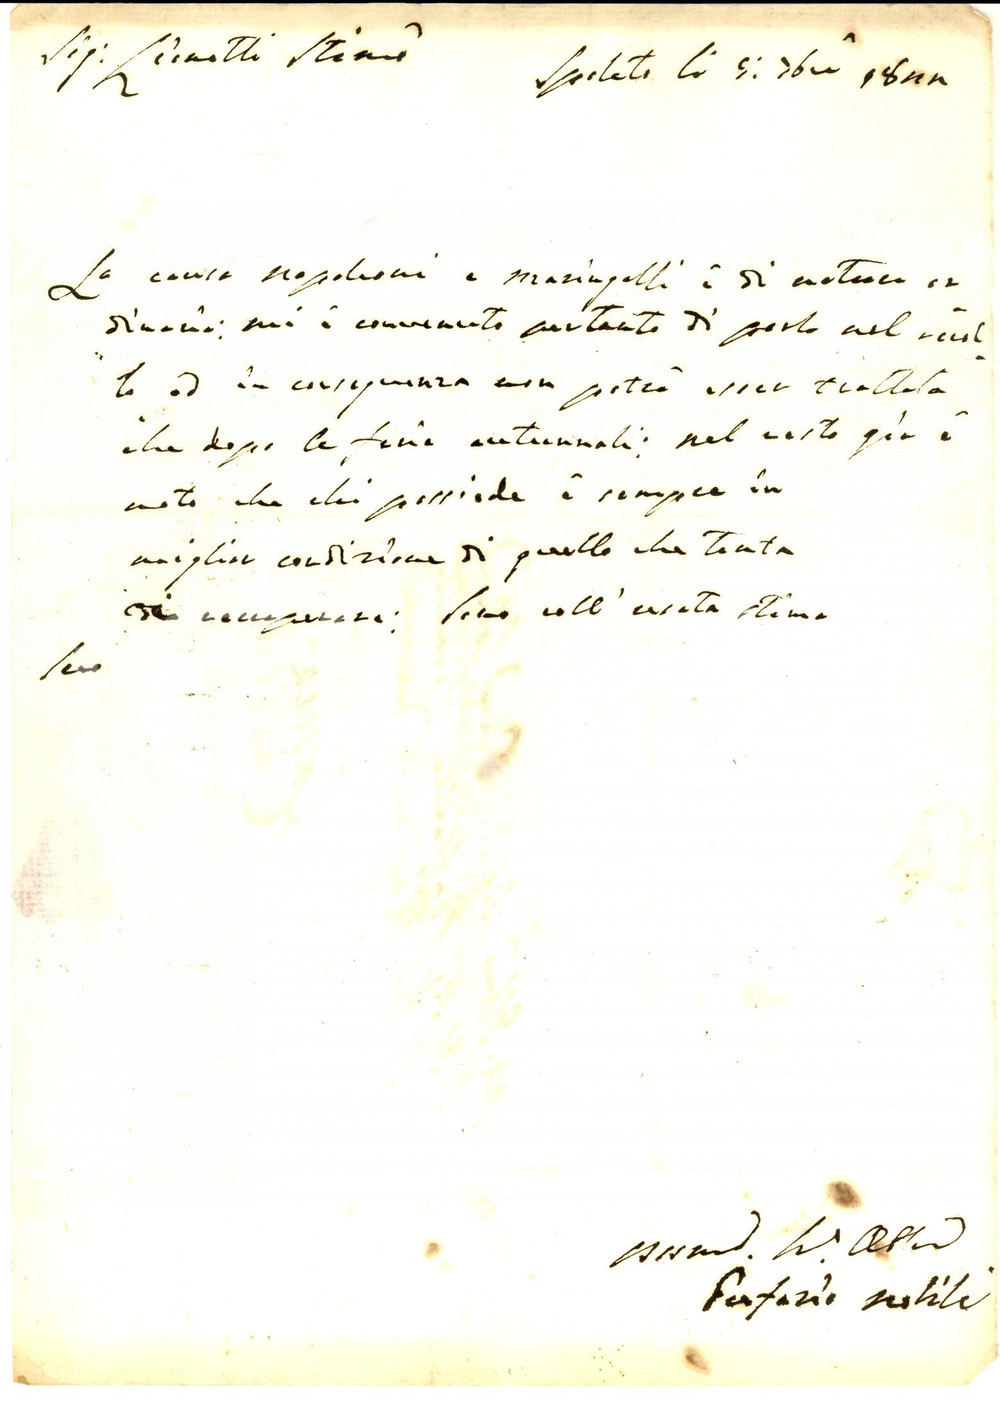 Sig: Leonetti Stimo
Spoleto li 5: 7bre 1844
La causa napoleoni e masingelli è di natura or
dinaria; mi è convenuto pertanto di porla nel ruol
lo ed in conseguenza non potrà esser trattata
che dopo le ferie autunnali; nel resto già è
noto che chi possiede è sempre in
miglior condizione di quello che tenta
di recuperare; Sono coll' usata stima
Suo
Porfirio nobili